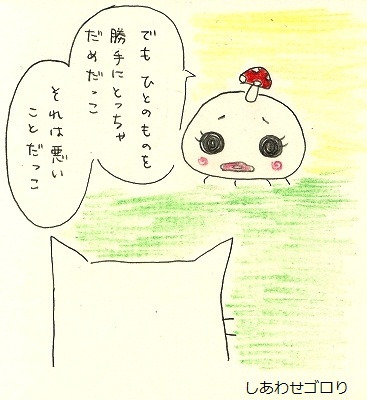 でも ひとのものを
勝手にとっちゃ
だめだっこ
それは悪い
ことだっこ
しあわせゴロり